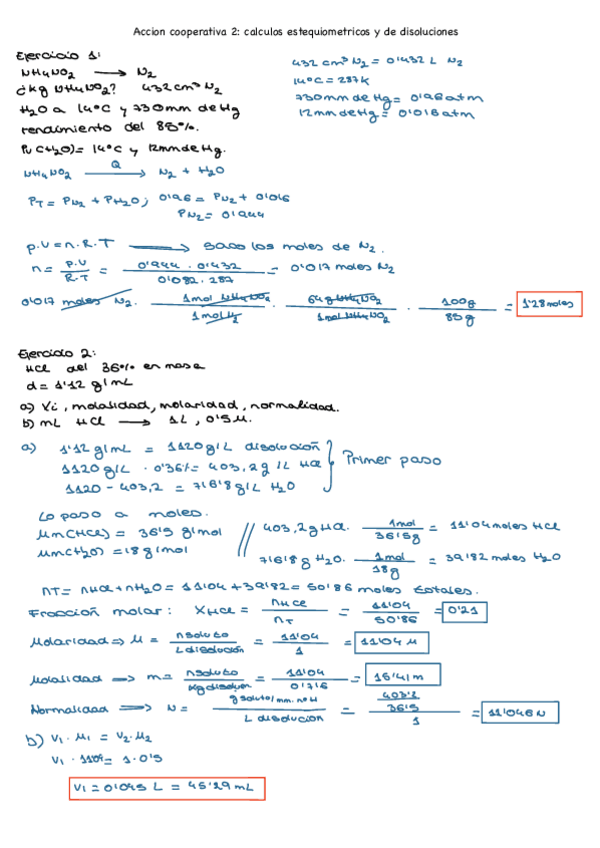 Accion cooperativa 2: calculos estequiometricos y de disoluciones
Ejercicio 1:
NH4NO2 → N2
¿kg NH4NO2? 432 cm³ N2
H2O a 14ºC y 730mm de Hg
rendimiento del 85%.
Pv(H2O)= 14ºC y 12mm de Hg.
432 cm³ N2 = 0'432 L N2
14ºC = 287K
730mm de Hg = 0'96 atm
12mm de Hg = 0'016 atm
NH4NO2 —Q→ N2 + H2O
PT = PN2 + PH2O; 0'96 = PN2 + 0'016
PN2 = 0'944
p.V = n.R.T → Saco los moles de N2.
n = p.V / R.T = 0'944 . 0'432 / 0'082 . 287 = 0'017 moles N2
0'017 moles N2 . 1mol NH4NO2 / 1mol N2 . 64g NH4NO2 / 1mol NH4NO2 . 100g / 85g = 1'28 moles
Ejercicio 2:
HCl del 36% en masa
d = 1'12 g/mL
a) Xi, molalidad, molaridad, normalidad.
b) mL HCl → 1L, 0'5M.
a) 1'12 g/mL = 1120 g/L disolución
1120 g/L . 0'36 = 403,2 g/L HCl
1120 - 403,2 = 716'8 g/L H2O
Primer paso
Lo paso a moles.
Mm(HCl) = 36'5 g/mol
Mm(H2O) = 18 g/mol
403,2 g HCl . 1mol / 36'5g = 11'04 moles HCl
716'8 g H2O . 1mol / 18g = 39'82 moles H2O
nT = nHCl + nH2O = 11'04 + 39'82 = 50'86 moles totales.
Fracción molar: XHCl = nHCl / nT = 11'04 / 50'86 = 0'21
Molaridad ⇒ M = nsoluto / L disolución = 11'04 / 1 = 11'04 M
Molalidad → m = nsoluto / kg disolven = 11'04 / 0'716 = 15'41 m
Normalidad → N = g soluto/mm. nºH / L disolución = 403'2 / 36'5 / 1 = 11'046 N
b) V1 . M1 = V2 . M2
V1 . 11'04 = 1 . 0'5
V1 = 0'045 L = 45'29 mL